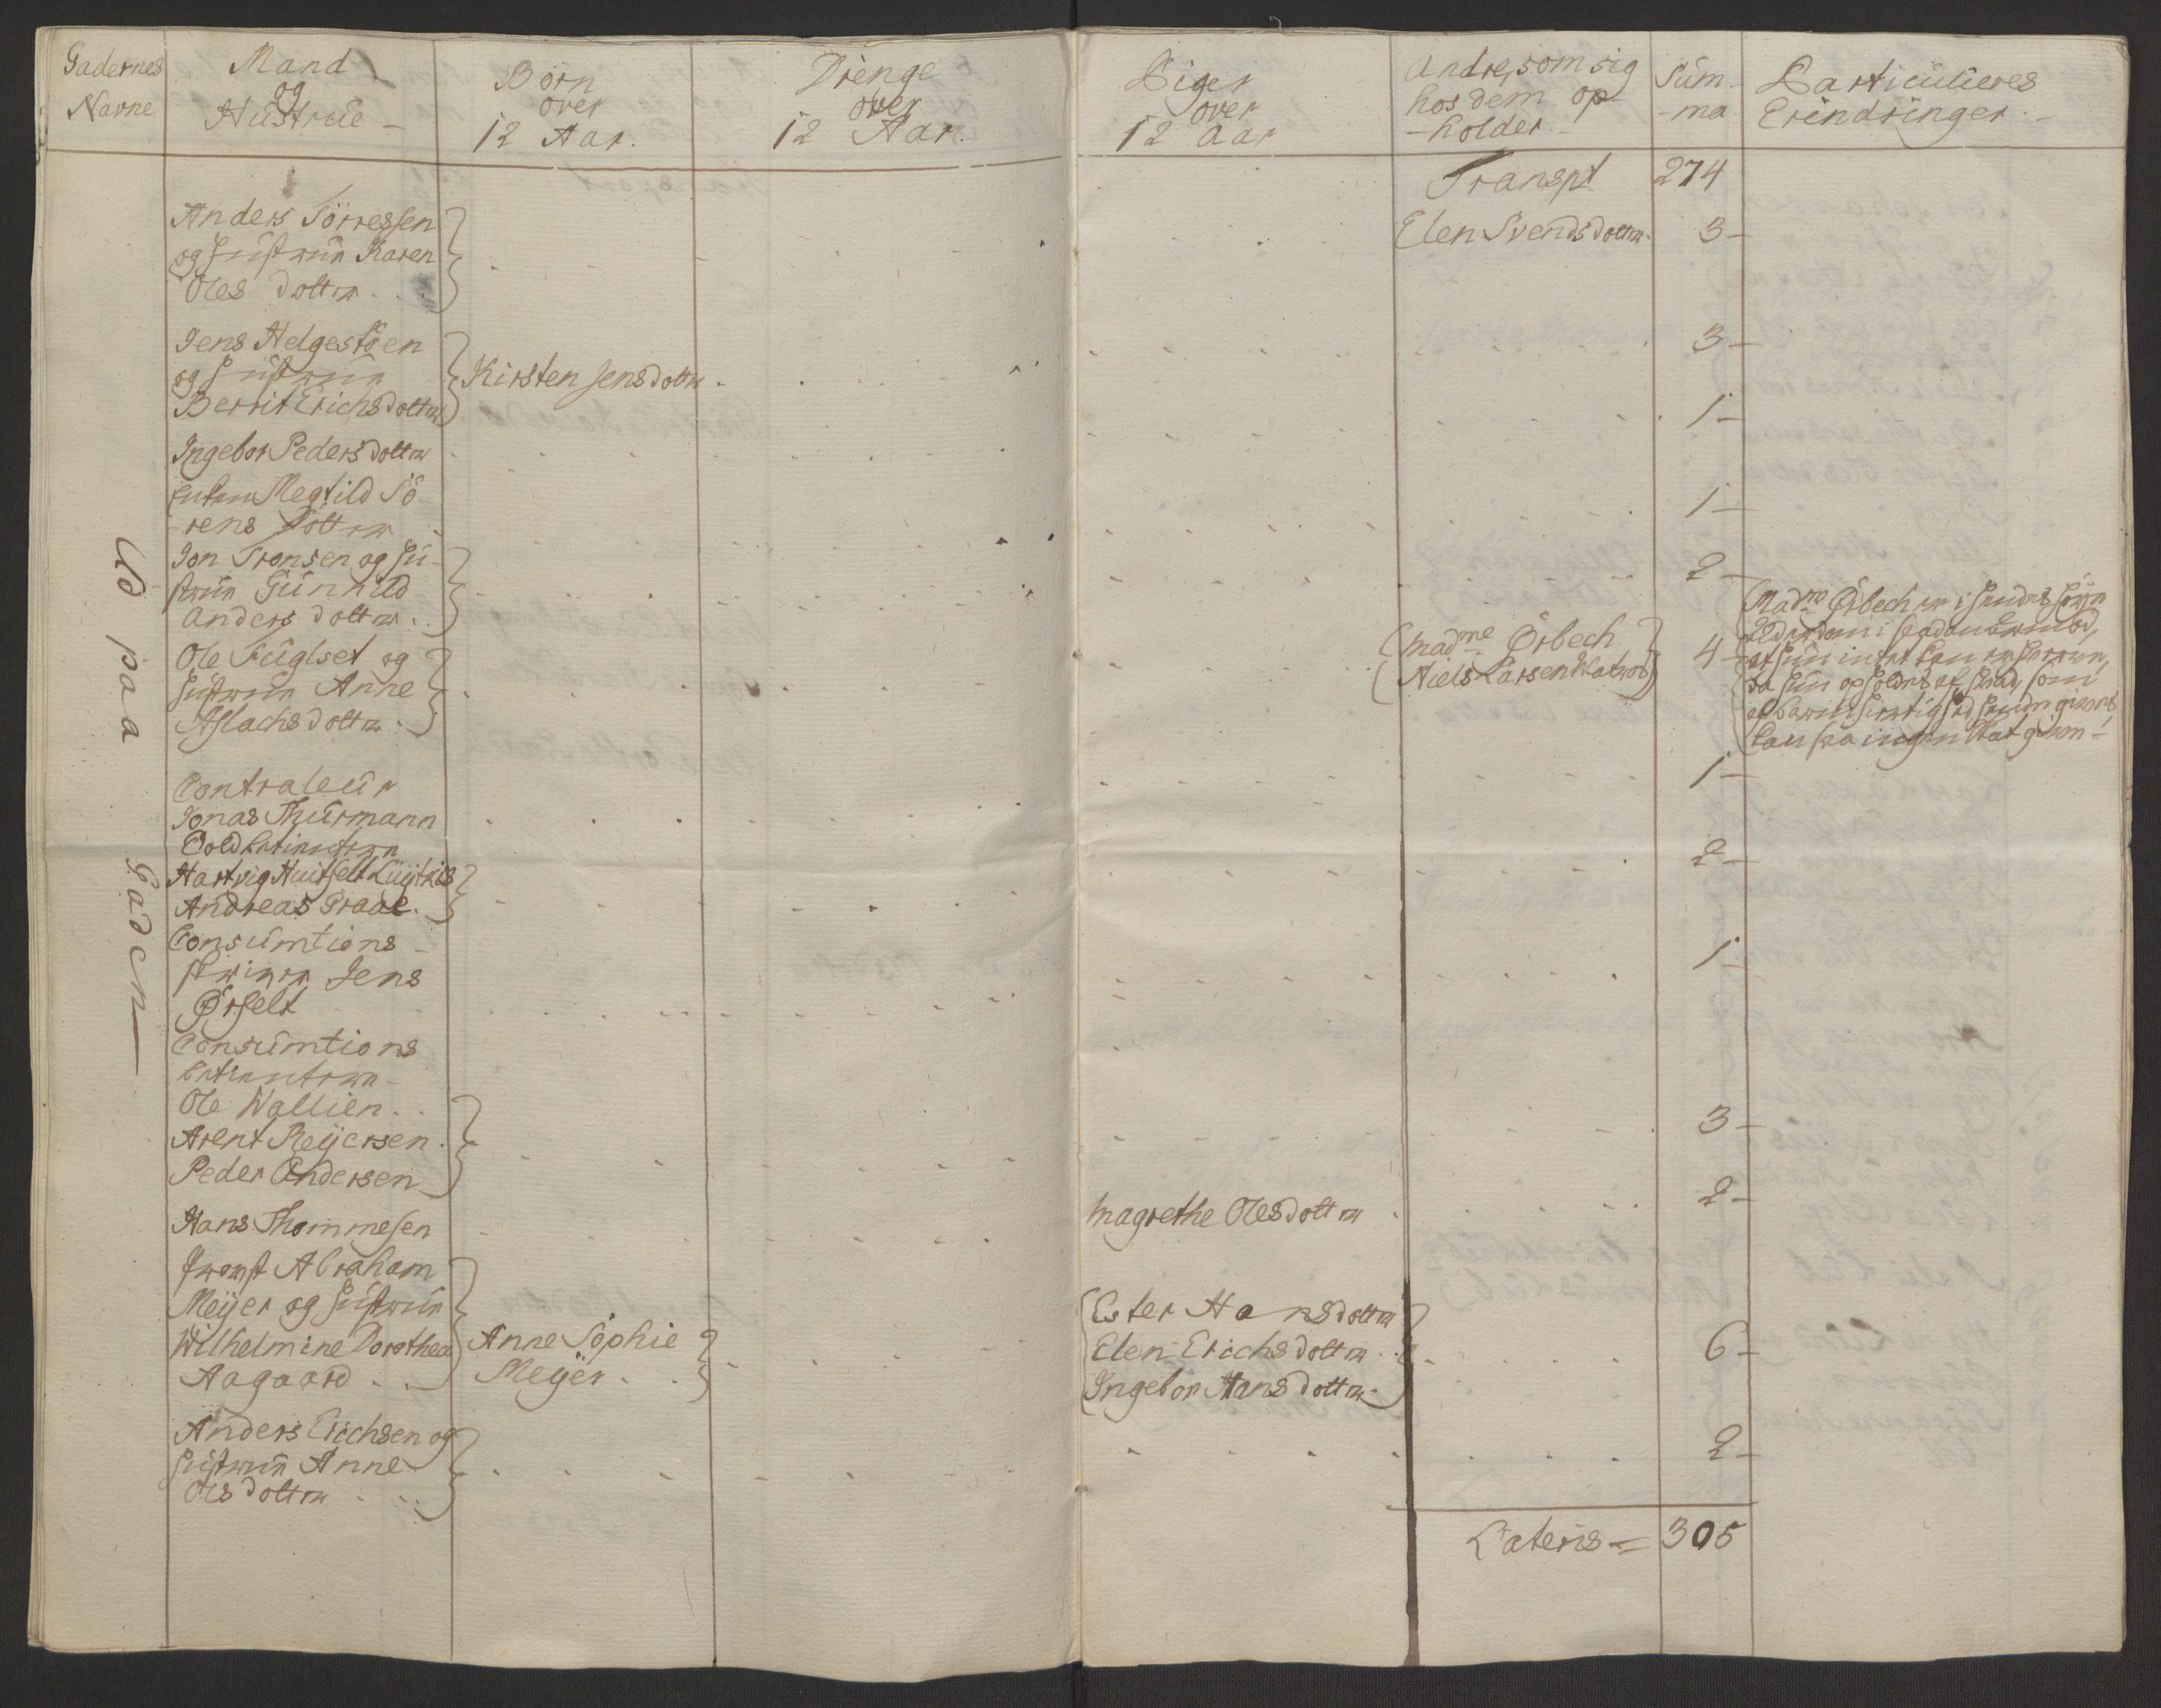 Gadernes
Navne
Mand
og
Hustrue
Børn
over
12 Aar.
Drenge
over
12 Aar.
Piger
over
12 Aar
Andre, som sig
hos dem op-
-holder.
Sum-
-ma
Particulieres
Erindringer.
Ud paa Gaden
Transpt 274
Anders Törressen
og Hustrue Karen
Oles dotter
Elen Svends dotter 3
Jens Helgestöen
og Hustrue
Berrit Erichs dotter
Kirsten Jens dotter
3
Ingebor Peders dotter
1
Enken Megtild Sö-
rens dotter
1
Jon Tronsen og Hu-
strue Gunnild
Anders dotter
2
Ole Fuglset og
Hustrue Anne
Aslachs dotter
Madme Örbech
Niels Larsen
4
Madme Örbech er i hendes höye
Alderdom i saadan Armod,
at hun intet kan erhverve,
da hun opholdes af hvad, som
af barmhiertighed hende gives,
kan saa ingen Skat given
Contraleur
Jonas Thurmann
1
Toldbetientere
Hartvig Huitfelt Lüytkis
Andreas Praae
2
Consumtions-
skriver Jens
Örfelt
1
Consumtions
betientere
Ole Wallien
Arent Reÿersen
Peder Andersen
3
Hans Thommesen
Magrethe Olesdotter
2
Provst Abraham
Meÿer og Hustrue
Wilhelmine Dorothea
Aagaard
Anne Sophie
Meÿer
Ester Hansdotter
Elen Erichs dotter
Ingebor Hans dotter
6
Anders Erichsen og
Hustrue Anne
Ols dotter
2
Lateris = 305